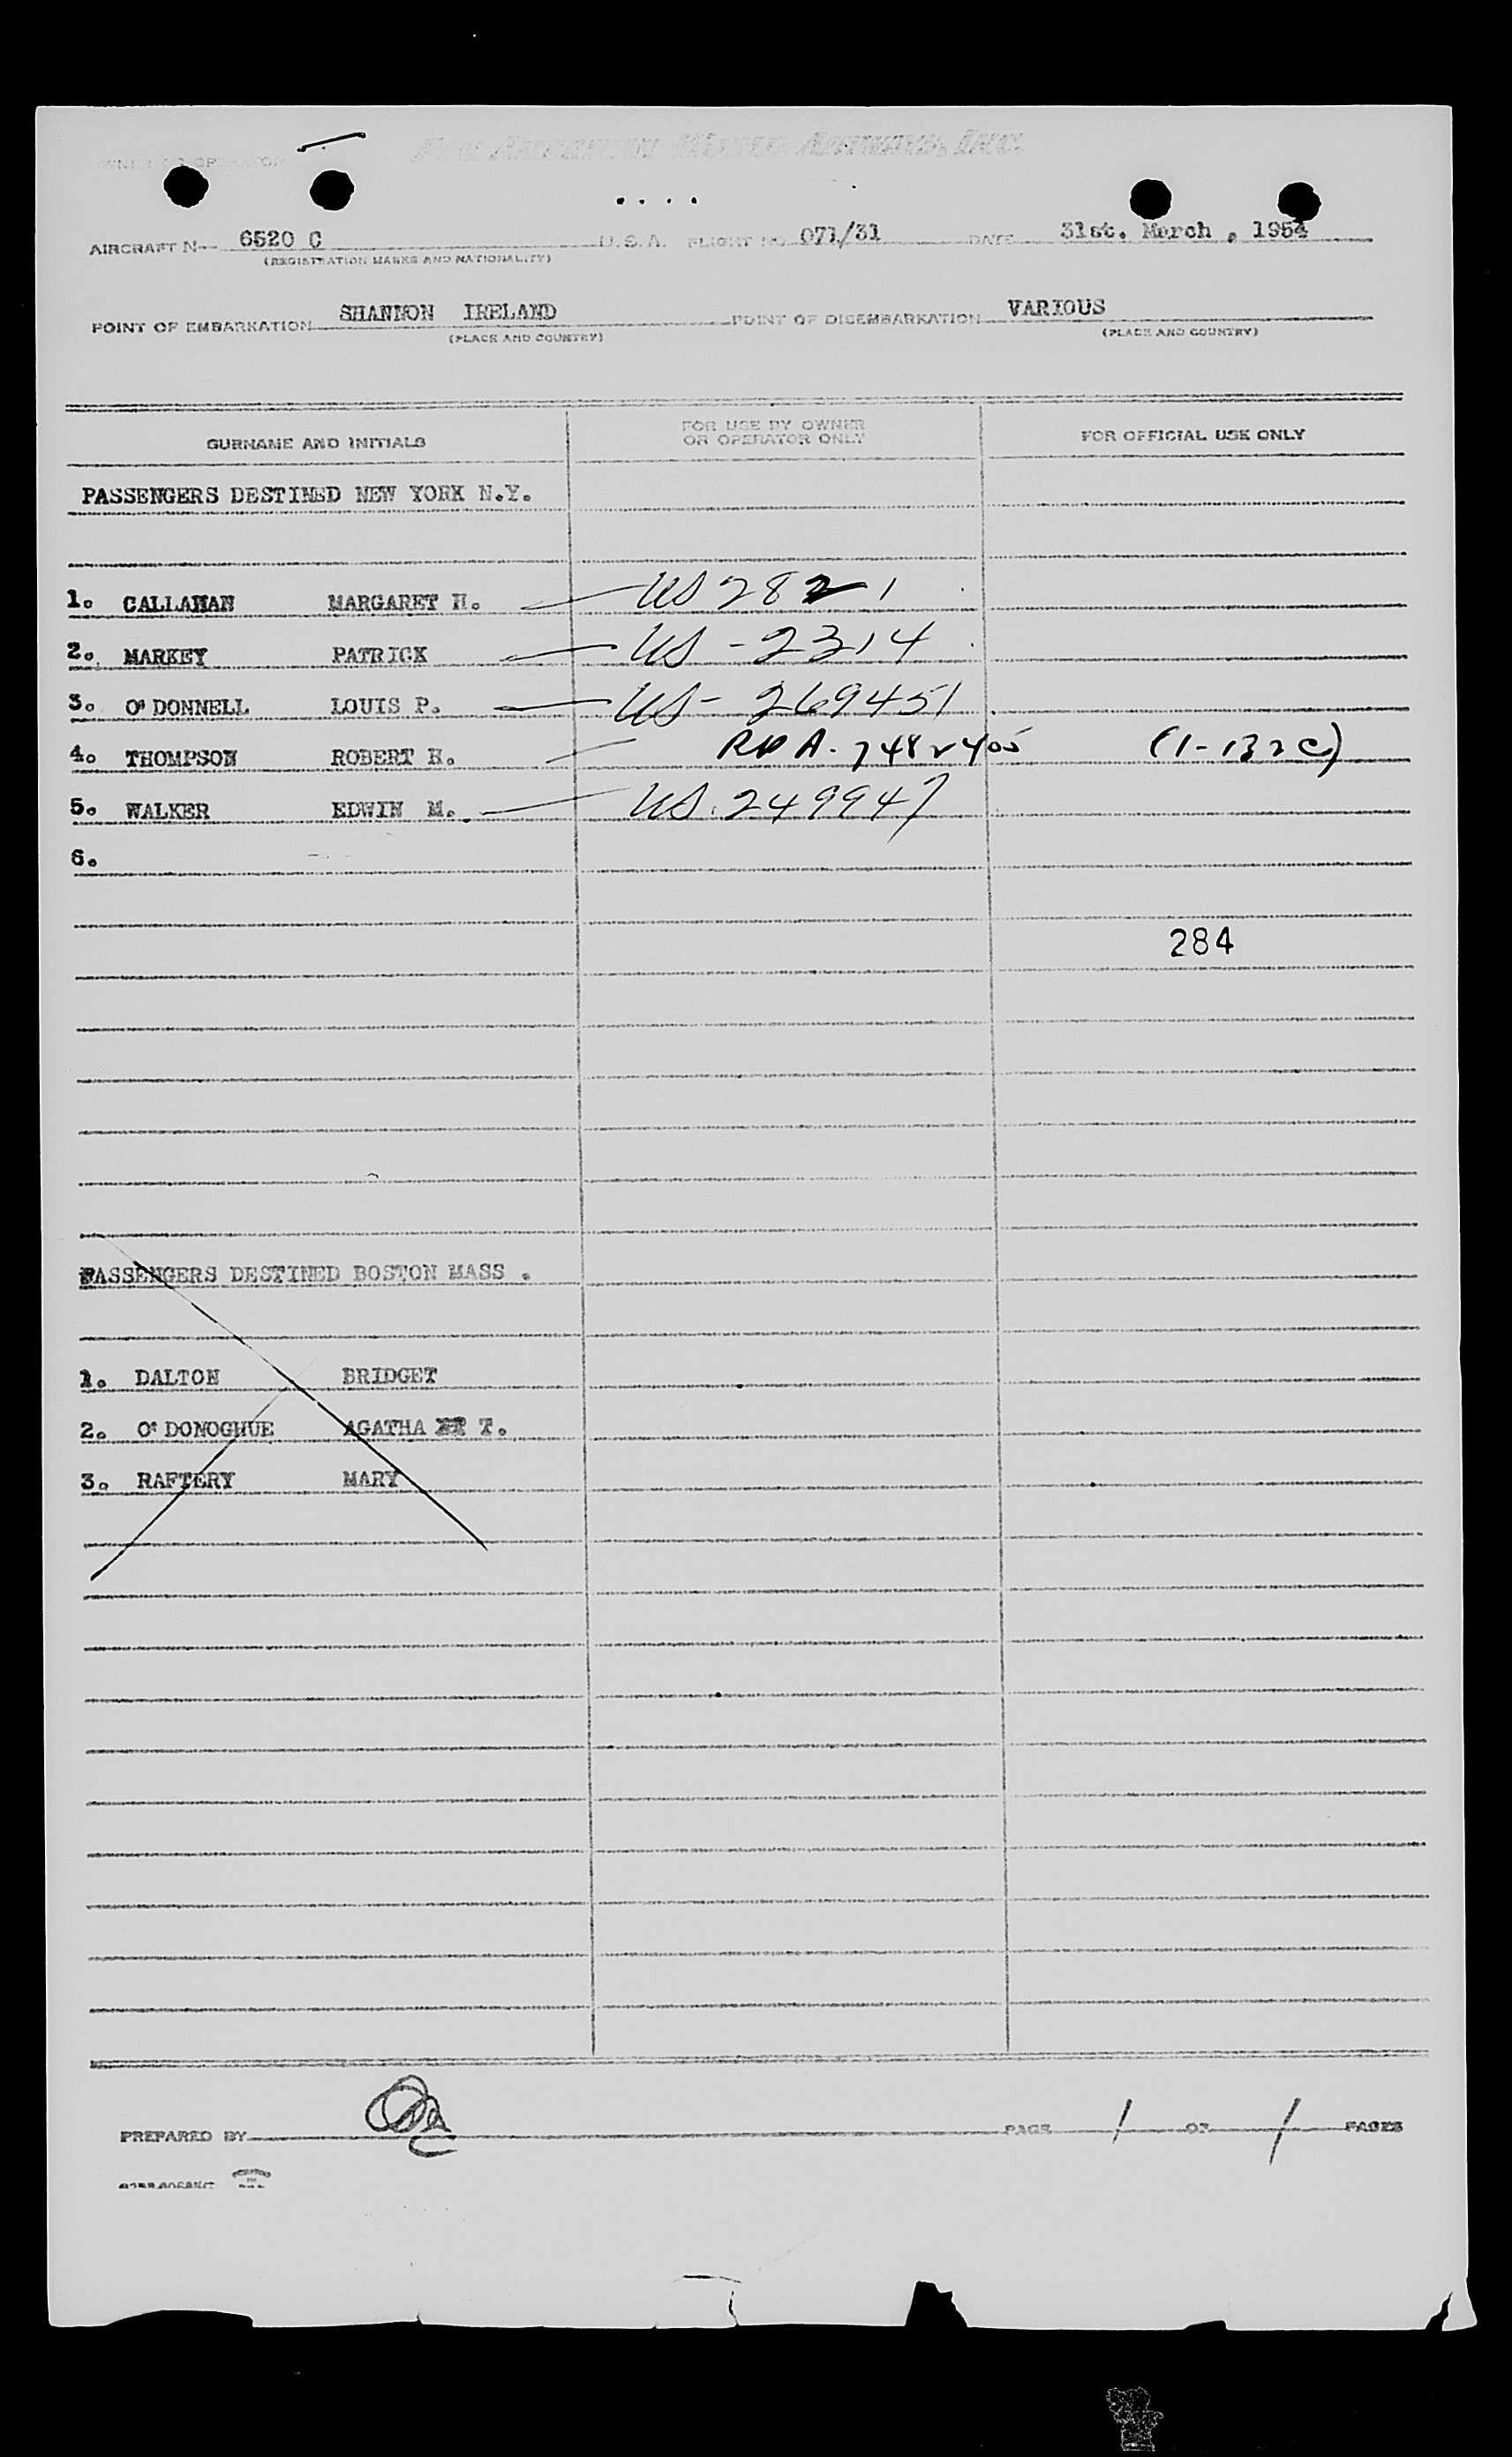 OWNER OR OPERATOR Pan American World Airways, Inc.
AIRCRAFT N— 6520 C U.S.A. FLIGHT NO. 071/31 DATE 31st. March , 1954
(REGISTRATION MARKS AND NATIONALITY)
POINT OF EMBARKATION SHANNON IRELAND POINT OF DISEMBARKATION VARIOUS
(PLACE AND COUNTRY) (PLACE AND COUNTRY)
SURNAME AND INITIALS FOR USE BY OWNER OR OPERATOR ONLY FOR OFFICIAL USE ONLY
PASSENGERS DESTINED NEW YORK N.Y.
1. CALLAHAN MARGARET H. US 2821
2. MARKEY PATRICK US - 2314
3. O'DONNELL LOUIS P. US - 269451
4. THOMPSON ROBERT H. A-7482405 (1-132c)
5. WALKER EDWIN M. US. 249947
6.
284
PASSENGERS DESTINED BOSTON MASS .
1. DALTON BRIDGET
2. O'DONOGHUE AGATHA T.
3. RAFTERY MARY
PREPARED BY PAGE 1 OF 1 PAGES